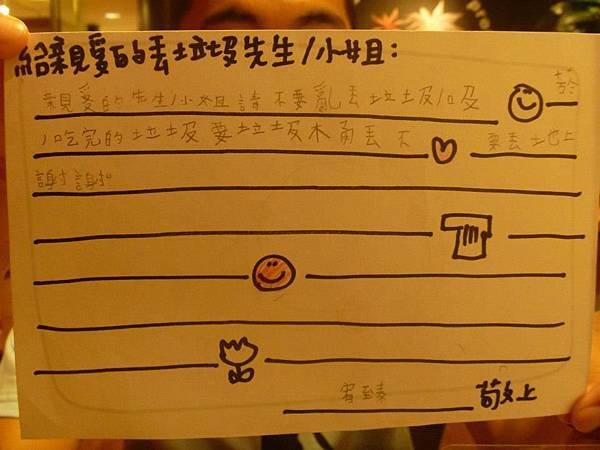 給親愛的丟垃圾先生/小姐:
親愛的先生/小姐請不要亂丟垃圾/吸菸
吃完的垃圾要垃圾木角丟不要丟土地上
謝謝
敬上